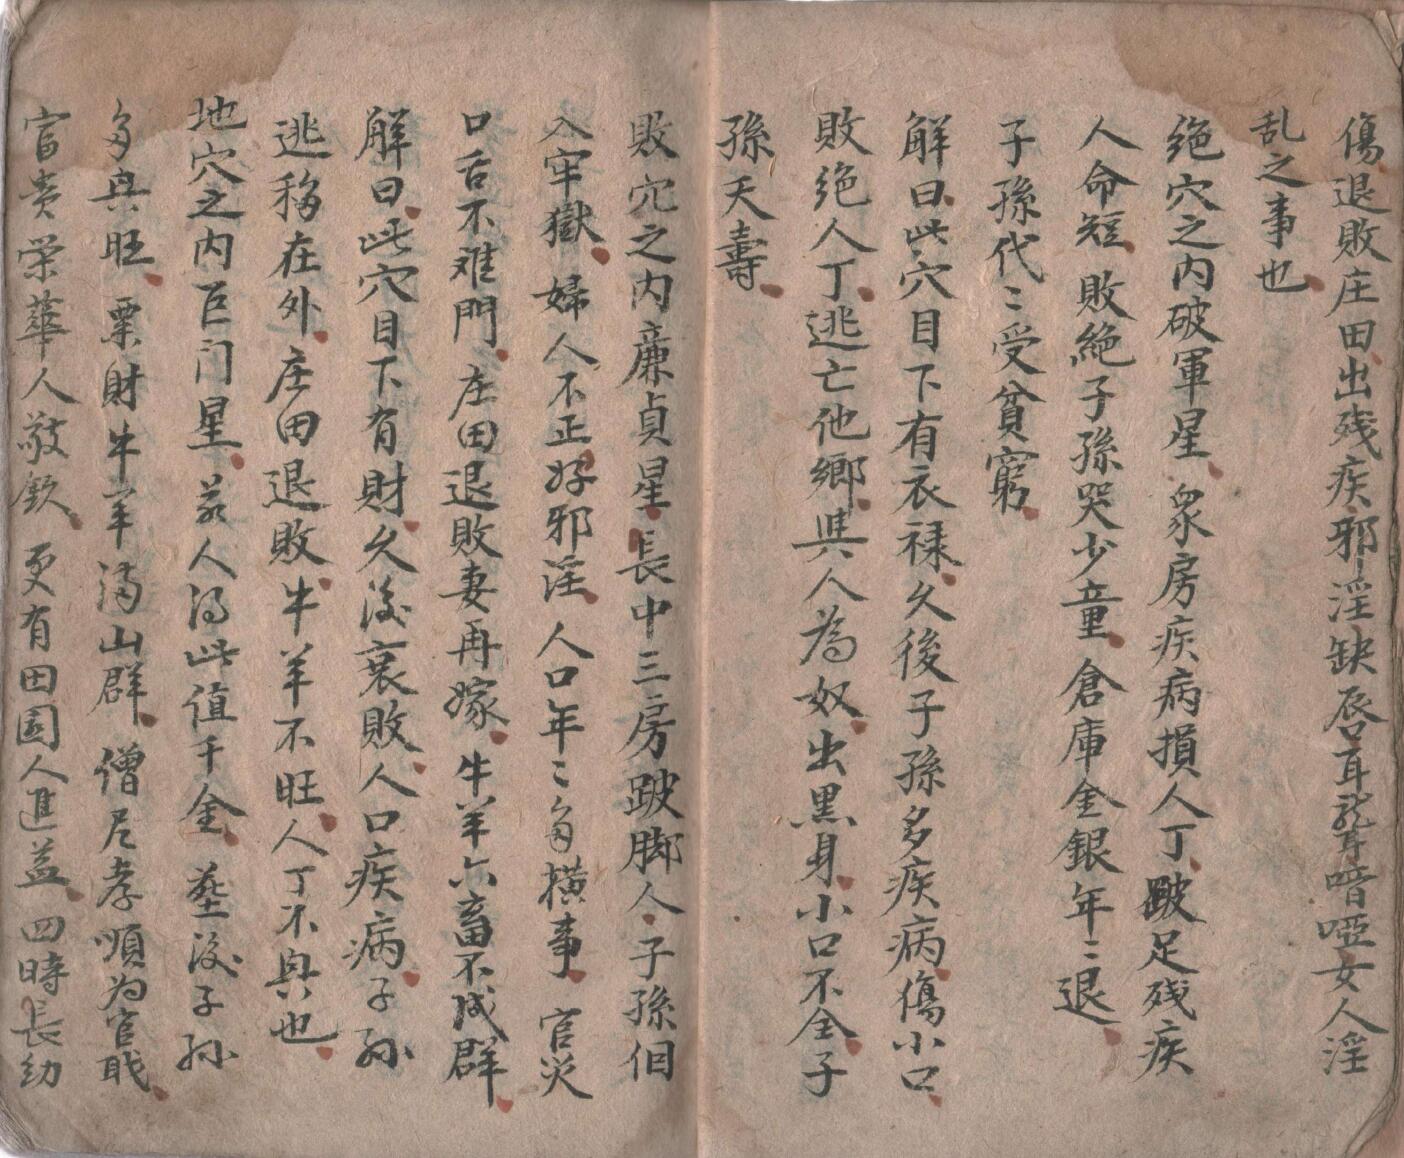 傷退敗庄田出残疾邪淫缺唇耳聾喑啞女人淫
乱之事也
絕穴之内破軍星衆房疾病損人丁跛足残疾
人命短敗絕子孫哭少童倉庫金銀年〻退
子孫代〻受貧窮
解曰此穴目下有衣禄久後子孫多疾病傷小口
敗绝人丁逃亡他鄉與人為奴出黑身小口不全子
孫夭壽
敗穴之内廉貞星長中三房跛脚人子孫佀
入牢獄婦人不正好邪淫人口年〻多橫事官災
口舌不难門庄田退敗妻再嫁牛羊六畜不成群
解曰此穴目下有財久後衰敗人口疾病子孙
逃移在外庄田退敗牛羊不旺人丁不興也
地穴之内巨门星若人得此值千金塟後子孙
多興旺粟財牛羊满山群僧尼孝順为官戢
富贵荣華人敬欽更有田園人進益四時長幼